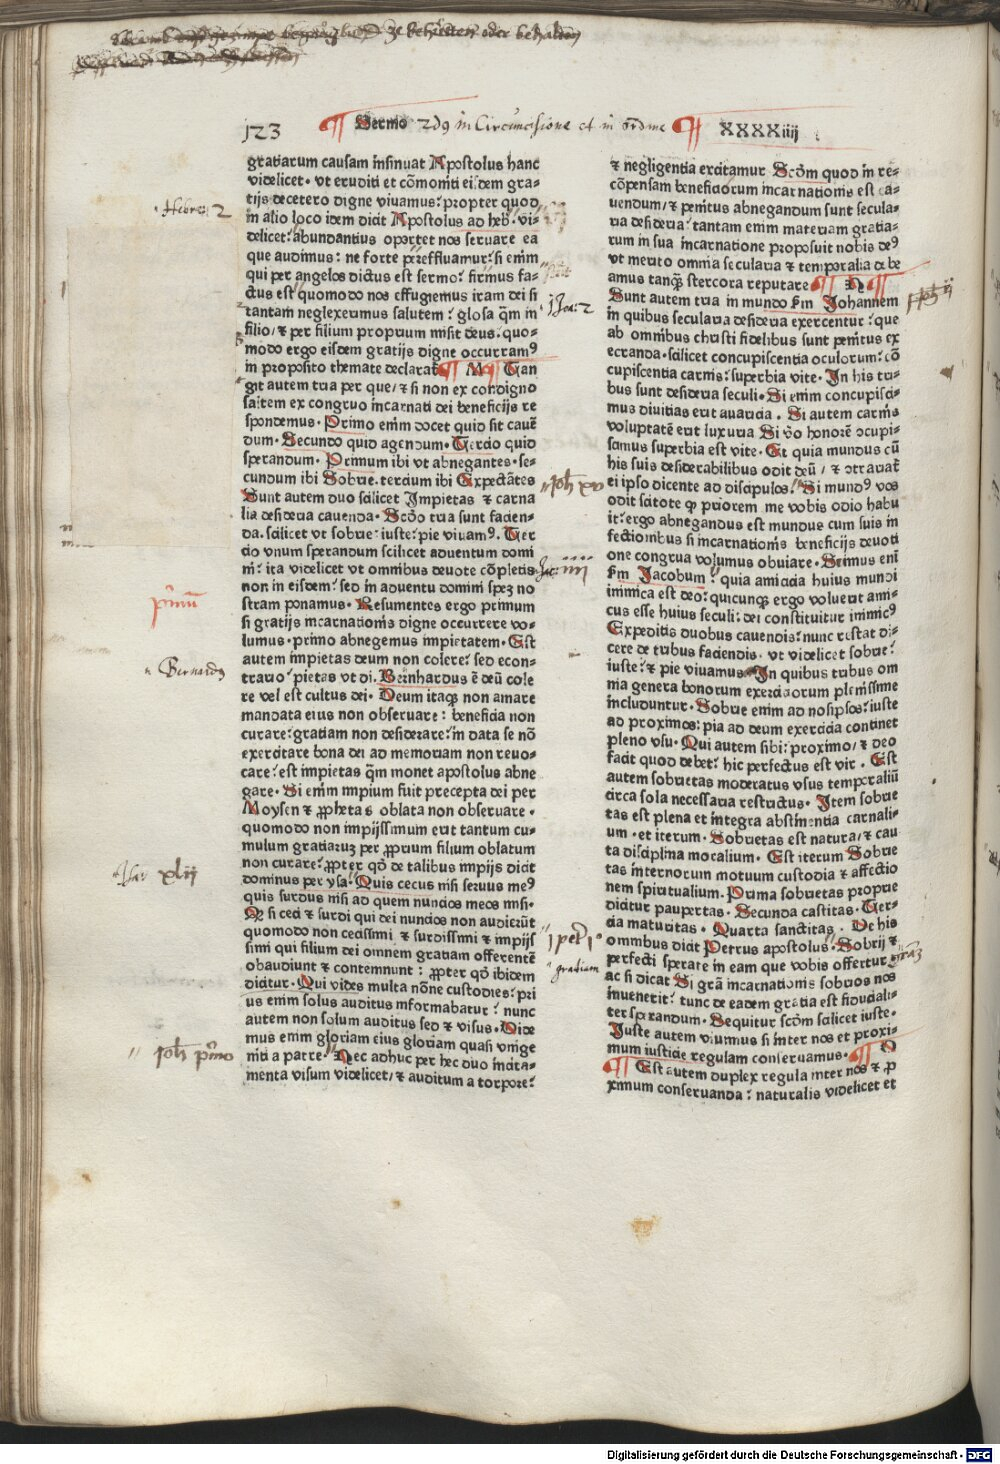 ze behalten oder behalten
123 ¶ Sermo 2dꝰ in Circumcisione et in ordine ¶ XXXXiiij
gratiarum causam insinuat Apostolus hanc
videlicet· vt eruditi et cōmoniti eisdem gra-
tijs decetero digne viuamus: propter quod
in alio loco idem dicit Apostolus ad heb. vi-
delicet: abundantius oportet nos seruare ea
que audimus: ne forte pereffluamur: si enim
qui per angelos dictus est sermo: firmus fa-
ctus est quomodo nos effugiemus iram dei si
tantam neglexerimus salutem: glosa q̄m in
filio/ ⁊ per filium proprium misit deus· quo-
modo ergo eisdem gratijs digne occurramꝰ
in proposito themate declarat ¶ M ¶ Tan
git autem tria per que/ ⁊ si non ex condigno
saltem ex congruo incarnati dei beneficijs re
spondemus· Primo enim docet quid sit cauē
dum· Secundo quid agendum· Tercio quid
sperandum· Primum ibi vt abnegantes· se-
cundum ibi Sobrie· tercium ibi Expectātes
Sunt autem duo scilicet Impietas ⁊ carna
lia desideria cauenda· Scōo tria sunt facien-
da. scilicet vt sobrie: iuste: pie viuamꝰ. Ter
cio vnum sperandum scilicet aduentum domi
ni: ita videlicet vt omnibus deuote cōpletis
non in eisdem: sed in aduentu domini spez no
stram ponamus· Resumentes ergo primum
si gratijs incarnationis digne occurrere vo-
lumus· primo abnegemus impietatem· Est
autem impietas deum non colere: sed econ-
trario pietas vt di. Bernhardus ē deū cole
re vel est cultus dei· Deum itaqꝫ non amare
mandata eius non obseruare: beneficia non
curare: gratiam non desiderare: in data se nō
exercitare bona dei ad memoriam non reuo-
care: est impietas q̄m monet apostolus abne
gare· Si enim impium fuit precepta dei per
Moysen ⁊ ꝓphetas oblata non obseruare·
quomodo non impijssimum erit tantum cu-
mulum gratiaruꝫ per ꝓprium filium oblatum
non curare: ꝓpter qd̄ de talibus impijs dicit
dominus per ysa. Quis cecus nisi seruus meꝰ
quis surdus nisi ad quem nuncios meos misi·
Qꝫ si ceci ⁊ surdi qui dei nuncios non audierūt
quomodo non cecissimi ⁊ surdissimi ⁊ impijs
simi qui filium dei omnem gratiam offerentē
obaudiunt ⁊ contemnunt: ꝓpter qd̄ ibidem
dicitur· Qui vides multa nōne custodies: pri
us enim solus auditus informabatur: nunc
autem non solum auditus sed ⁊ visus· Vide
mus enim gloriam eius gloriam quasi vnige
niti a patre· Nec adhuc per hec duo incita-
menta visum videlicet/ ⁊ auditum a torpore:
⁊ negligentia excitamur Scōm quod in re-
cōpensam beneficiorum incarnationis est ca-
uendum/ ⁊ penitus abnegandum sunt secula-
ria desideria: tantam enim materiam gratia-
rum in sua incarnatione proposuit nobis deꝰ
vt merito omnia secularia ⁊ temporalia debe
amus tanqꝫ stercora reputare ¶ N ¶
Sunt autem tria in mundo s̄m Johannem
in quibus secularia desideria exercentur: que
ab omnibus christi fidelibus sunt penitus ex
ecranda· scilicet concupiscentia oculorum: cō
cupiscentia carnis: superbia vite· In his tri-
bus sunt desideria seculi· Si enim concupisci-
mus diuitias erit auaricia. Si autem carnis
voluptatē erit luxuria Si v̄o honorē ɔcupi-
scimus superbia est vite· Et quia mundus cū
his suis desiderabilibus odit deū/ ⁊ ɔtrariat̄
ei ipso dicente ad discipulos: Si mundꝰ vos
odit scitote qꝫ priorem me vobis odio habu
it: ergo abnegandus est mundus cum suis in
fectionibus si incarnationis beneficijs deuoti
one congrua volumus obuiare· Scimus eni
s̄m Jacobum: quia amicicia huius mundi
inimica est deo: quicunqꝫ ergo voluerit ami-
cus esse huius seculi: dei constituitur inimicꝰ
Expeditis duobus cauendis: nunc restat di-
cere de tribus faciendis· vt videlicet sobrie:
iuste: ⁊ pie viuamus In quibus tribus om
nia genera bonorum exerciciorum plenissime
includuntur· Sobrie enim ad nosipsos: iuste
ad proximos: pia ad deum exercicia continet
pleno vsu· Qui autem sibi: proximo/ ⁊ deo
facit quod debet: hic perfectus est vir. Est
autem sobrietas moderatus vsus temporaliū
circa sola necessaria restrictus· Item sobrie
tas est plena et integra abstinentia carnali-
um· et iterum· Sobrietas est natura/ ⁊ cau
ta disciplina moralium· Est iterum Sobrie
tas internorum motuum custodia ⁊ affectio
nem spiritualium. Prima sobrietas proprie
dicitur paupertas. Secunda castitas. Ter-
cia maturitas. Quarta sanctitas. De his
omnibus dicit Petrus apostolus· Sobrij ⁊
perfecti sperate in eam que vobis offertur
ac si dicat Si grā incarnationis sobrios nos
inuenerit: tunc de eadem gratia est fiduciali-
ter sperandum· Sequitur scōm scilicet iuste·
Iuste autem viuimus si inter nos et proxi-
mum iusticie regulam conseruamus· ¶ O
¶ Est autem duplex regula inter nos ⁊ ꝓ
ximum conseruanda: naturalis videlicet et
Hebre: 2
primū
Bernardꝰ
Isai xlij
Joh primo
j Joa: 2
Joh xv
Jac: iiij
j pet: 1º
gratiam
Digitalisierung gefördert durch die Deutsche Forschungsgemeinschaft - DFG